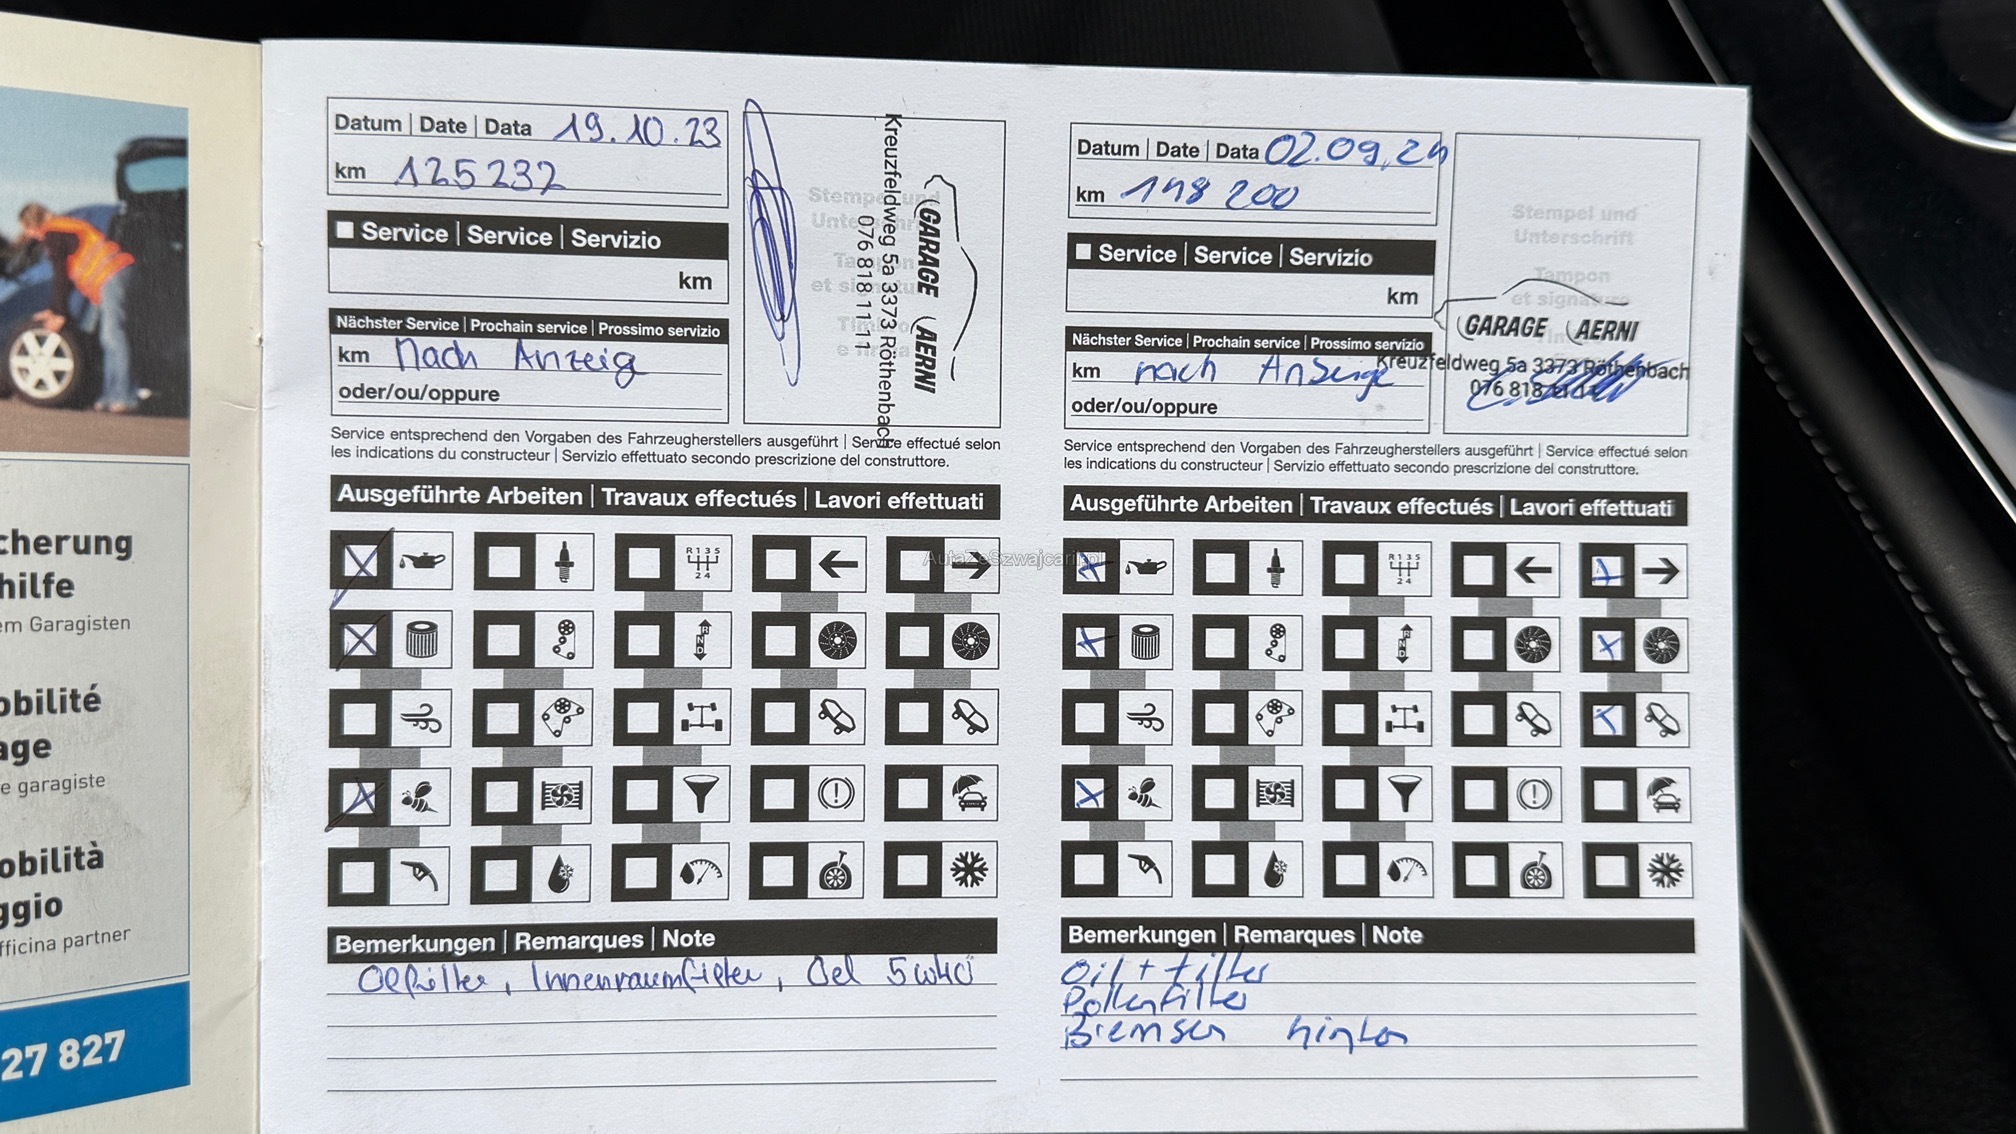 cherung
hilfe
em Garagisten
obilité
age
e garagiste
obilità
ggio
fficina partner
27 827
Datum | Date | Data 19.10.23
km 125232
Service | Service | Servizio
km
Nächster Service | Prochain service | Prossimo servizio
km Nach Anzeig
oder/ou/oppure
GARAGE AERNI
Kreuzfeldweg 5a 3373 Röthenbach
076 818 11 11
Service entsprechend den Vorgaben des Fahrzeugherstellers ausgeführt | Service effectué selon
les indications du constructeur | Servizio effettuato secondo prescrizione del construttore.
Ausgeführte Arbeiten | Travaux effectués | Lavori effettuati
R 1 3 5
2 4
R
N
D
Bemerkungen | Remarques | Note
Oelfilter, Innenraumfilter, Oel 5W40
Datum | Date | Data 02.09.24
km 148 200
Service | Service | Servizio
km
Nächster Service | Prochain service | Prossimo servizio
km nach Anzeige
oder/ou/oppure
Stempel und
Unterschrift
Tampon
et signature
GARAGE AERNI
Kreuzfeldweg 5a 3373 Röthenbach
076 818
Service entsprechend den Vorgaben des Fahrzeugherstellers ausgeführt | Service effectué selon
les indications du constructeur | Servizio effettuato secondo prescrizione del construttore.
Ausgeführte Arbeiten | Travaux effectués | Lavori effettuati
AutazeSzwajcarii.pl
R 1 3 5
2 4
R
N
D
Bemerkungen | Remarques | Note
Oil + Filter
Pollenfilter
Bremsen hinten